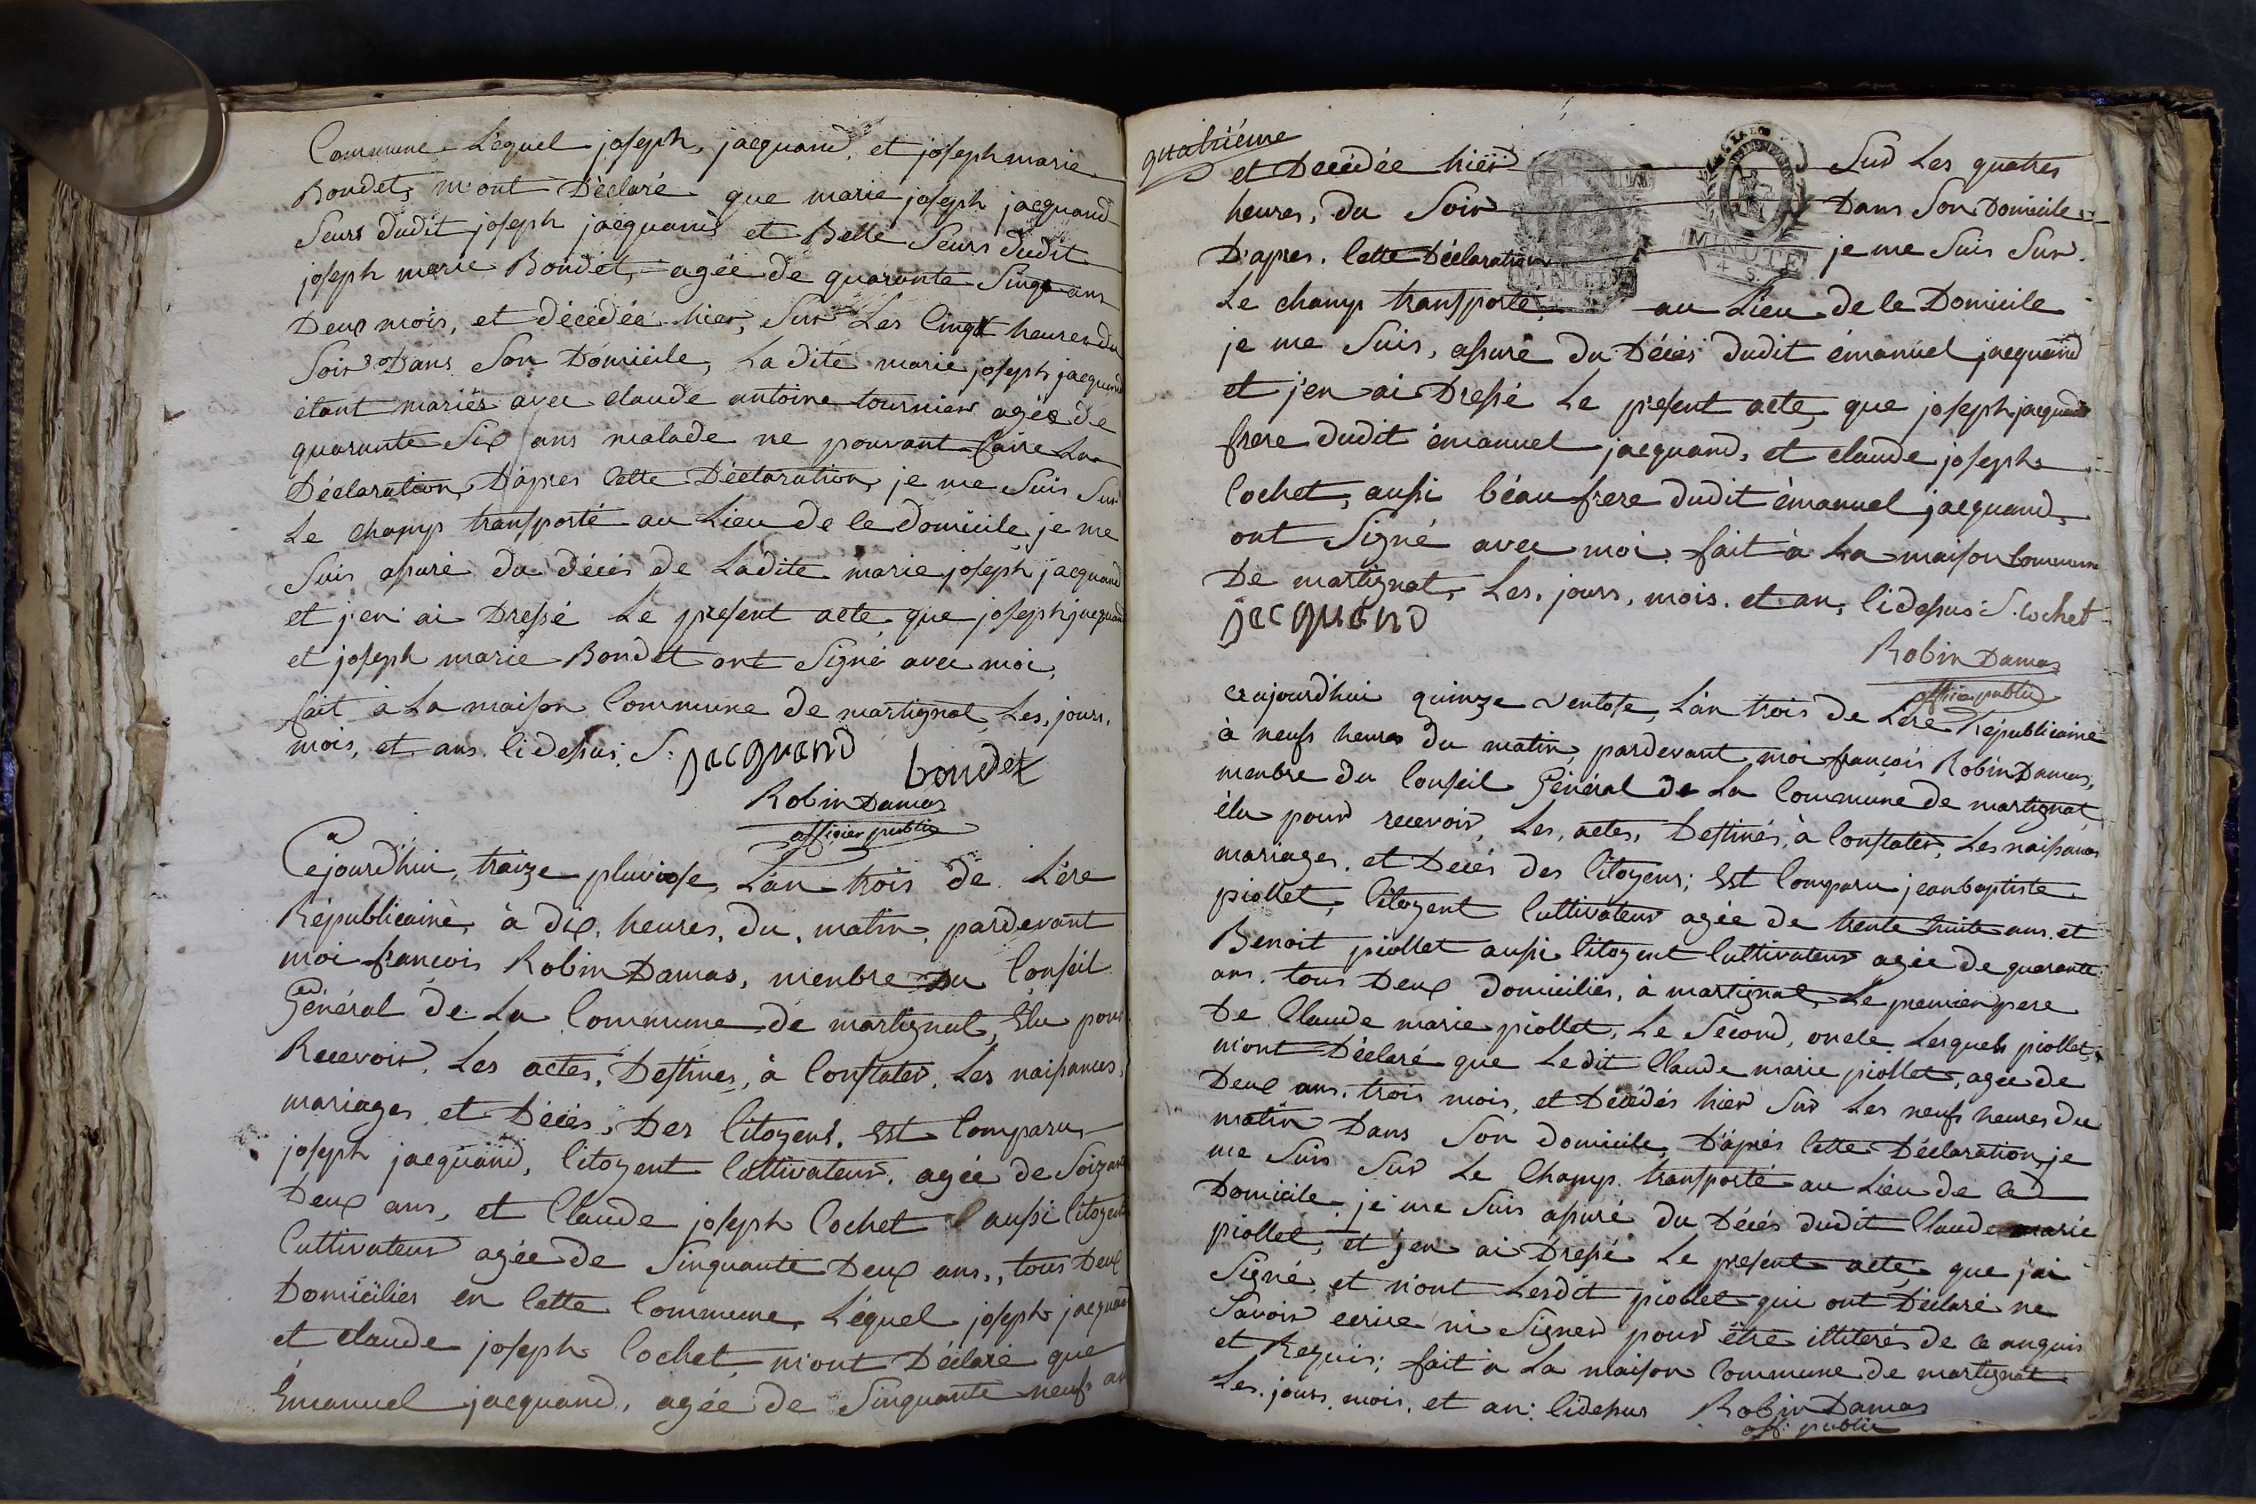 Commune Lequel joseph, jacquand, et joseph marie
Bondet, m'ont Déclaré que marie joseph jacquand
Seurs dudit joseph jacquand et Belle Seurs dudit
joseph marie Bondet, agée de quarante Sinq ans
Deux mois, et décédée hier, Sur Les Cinqt heures du
Soir Dans Son Domicile, La dite marie joseph jacquand
étant mariés avec claude antoine tournier agés de
quarante Six ans malade ne pouvant faire La
Déclaration, D'apres Cette Déclaration, je me Suis Sur
Le champ transporté au Lieu de le domicile je me
Suis assuré du décés de Ladite marie joseph jacquand
et j'en ai Dressé Le present acte que joseph jacquand
et joseph marie Bondet ont Signé avec moi,
fait à La maison Commune de martignat Les, jours,
mois, et ans Cidessus. S. jacquand bondet
Robin Damas
officier public
Cejourd'hui, traize pluviose, L'an trois de L'ére
Républicaine à dix, heures, du, matin, pardevant
moi françois Robin Damas, menbre Du Conseil
Général de La Commune de martignat, Elu pour
Recevoir, Les actes, Destines, à Constater, Les naissances,
mariages et Décés, Des Citoyens, Est Comparu
joseph jacquand, Citoyent Cultivateur, agée de Soizante
Deux ans, et Claude joseph Cochet aussi Citoyent
Cultivateur agée de Sinquante Deux ans, tous Deux
Domiciliés en Cette Commune Léquel joseph jacquand
et claude joseph Cochet, m'ont Déclaré que
Emanuel jacquand, agée de Sinquante neufs an
quatriéme
et Décédée hier Sur Les quatres
heures, du Soir Dans Son Domicile
D'apres, Cette Déclaration je me Suis Sur
MINUTE
4 S.
Le champ transporté, au Lieu de le Domicile
je me Suis, assuré du Décés dudit émanuel jacquand
et j'en ai Dressé Le present acte, que joseph jacquand
frere dudit émanuel jacquand, et claude joseph
Cochet, aussi béau frere dudit émanuel jacquand,
ont Signé avec moi fait à La maison Commune
De martignat, Les, jours, mois, et an, Cidessus S. Cochet
jacquand
Robin Damas
officier public
Cejourd'hui quinze ventose, L'an trois de L'ére Républicaine
à neufs heures du matin, pardevant moi françois Robin Damas,
menbre du Conseil Général de La Commune de martignat
élu pour recevoir, Les, actes, Destinés, à Constater, Les naissances
mariages, et Decés des Citoyens; Est Comparu jean baptiste
piollet, Citoyent Cultivateur agée de trente huite ans, et
Benoit piollet aussi Citoyent Cultivateur agée de quarante
ans, tous Deux domiciliés, à martignat, Le premier pere
De Claude marie piollet, Le Sécond, oncle, Lesquels piollet,
m'ont Déclaré que Ledit Claude marie piollet, agée de
Deux ans, trois mois, et Décédés hier Sur Les neufs heures du
matin Dans Son domicile, D'aprés Cette Déclaration, je
me Suis Sur Le Champ transporté au Lieu de Ced
Domicile je me Suis assuré du Décés dudit Claude marie
piollet, et j'en ai Dressé Le present acte, que j'ai
Signé, et n'ont Lesdit piollet qui ont Déclaré ne
Savoir ecrire ni Signer pour être illiterés de ce anquis
et Requis; fait à La maison Commune de martignat
Les, jours, mois, et an, Cidessus Robin Damas
off. public